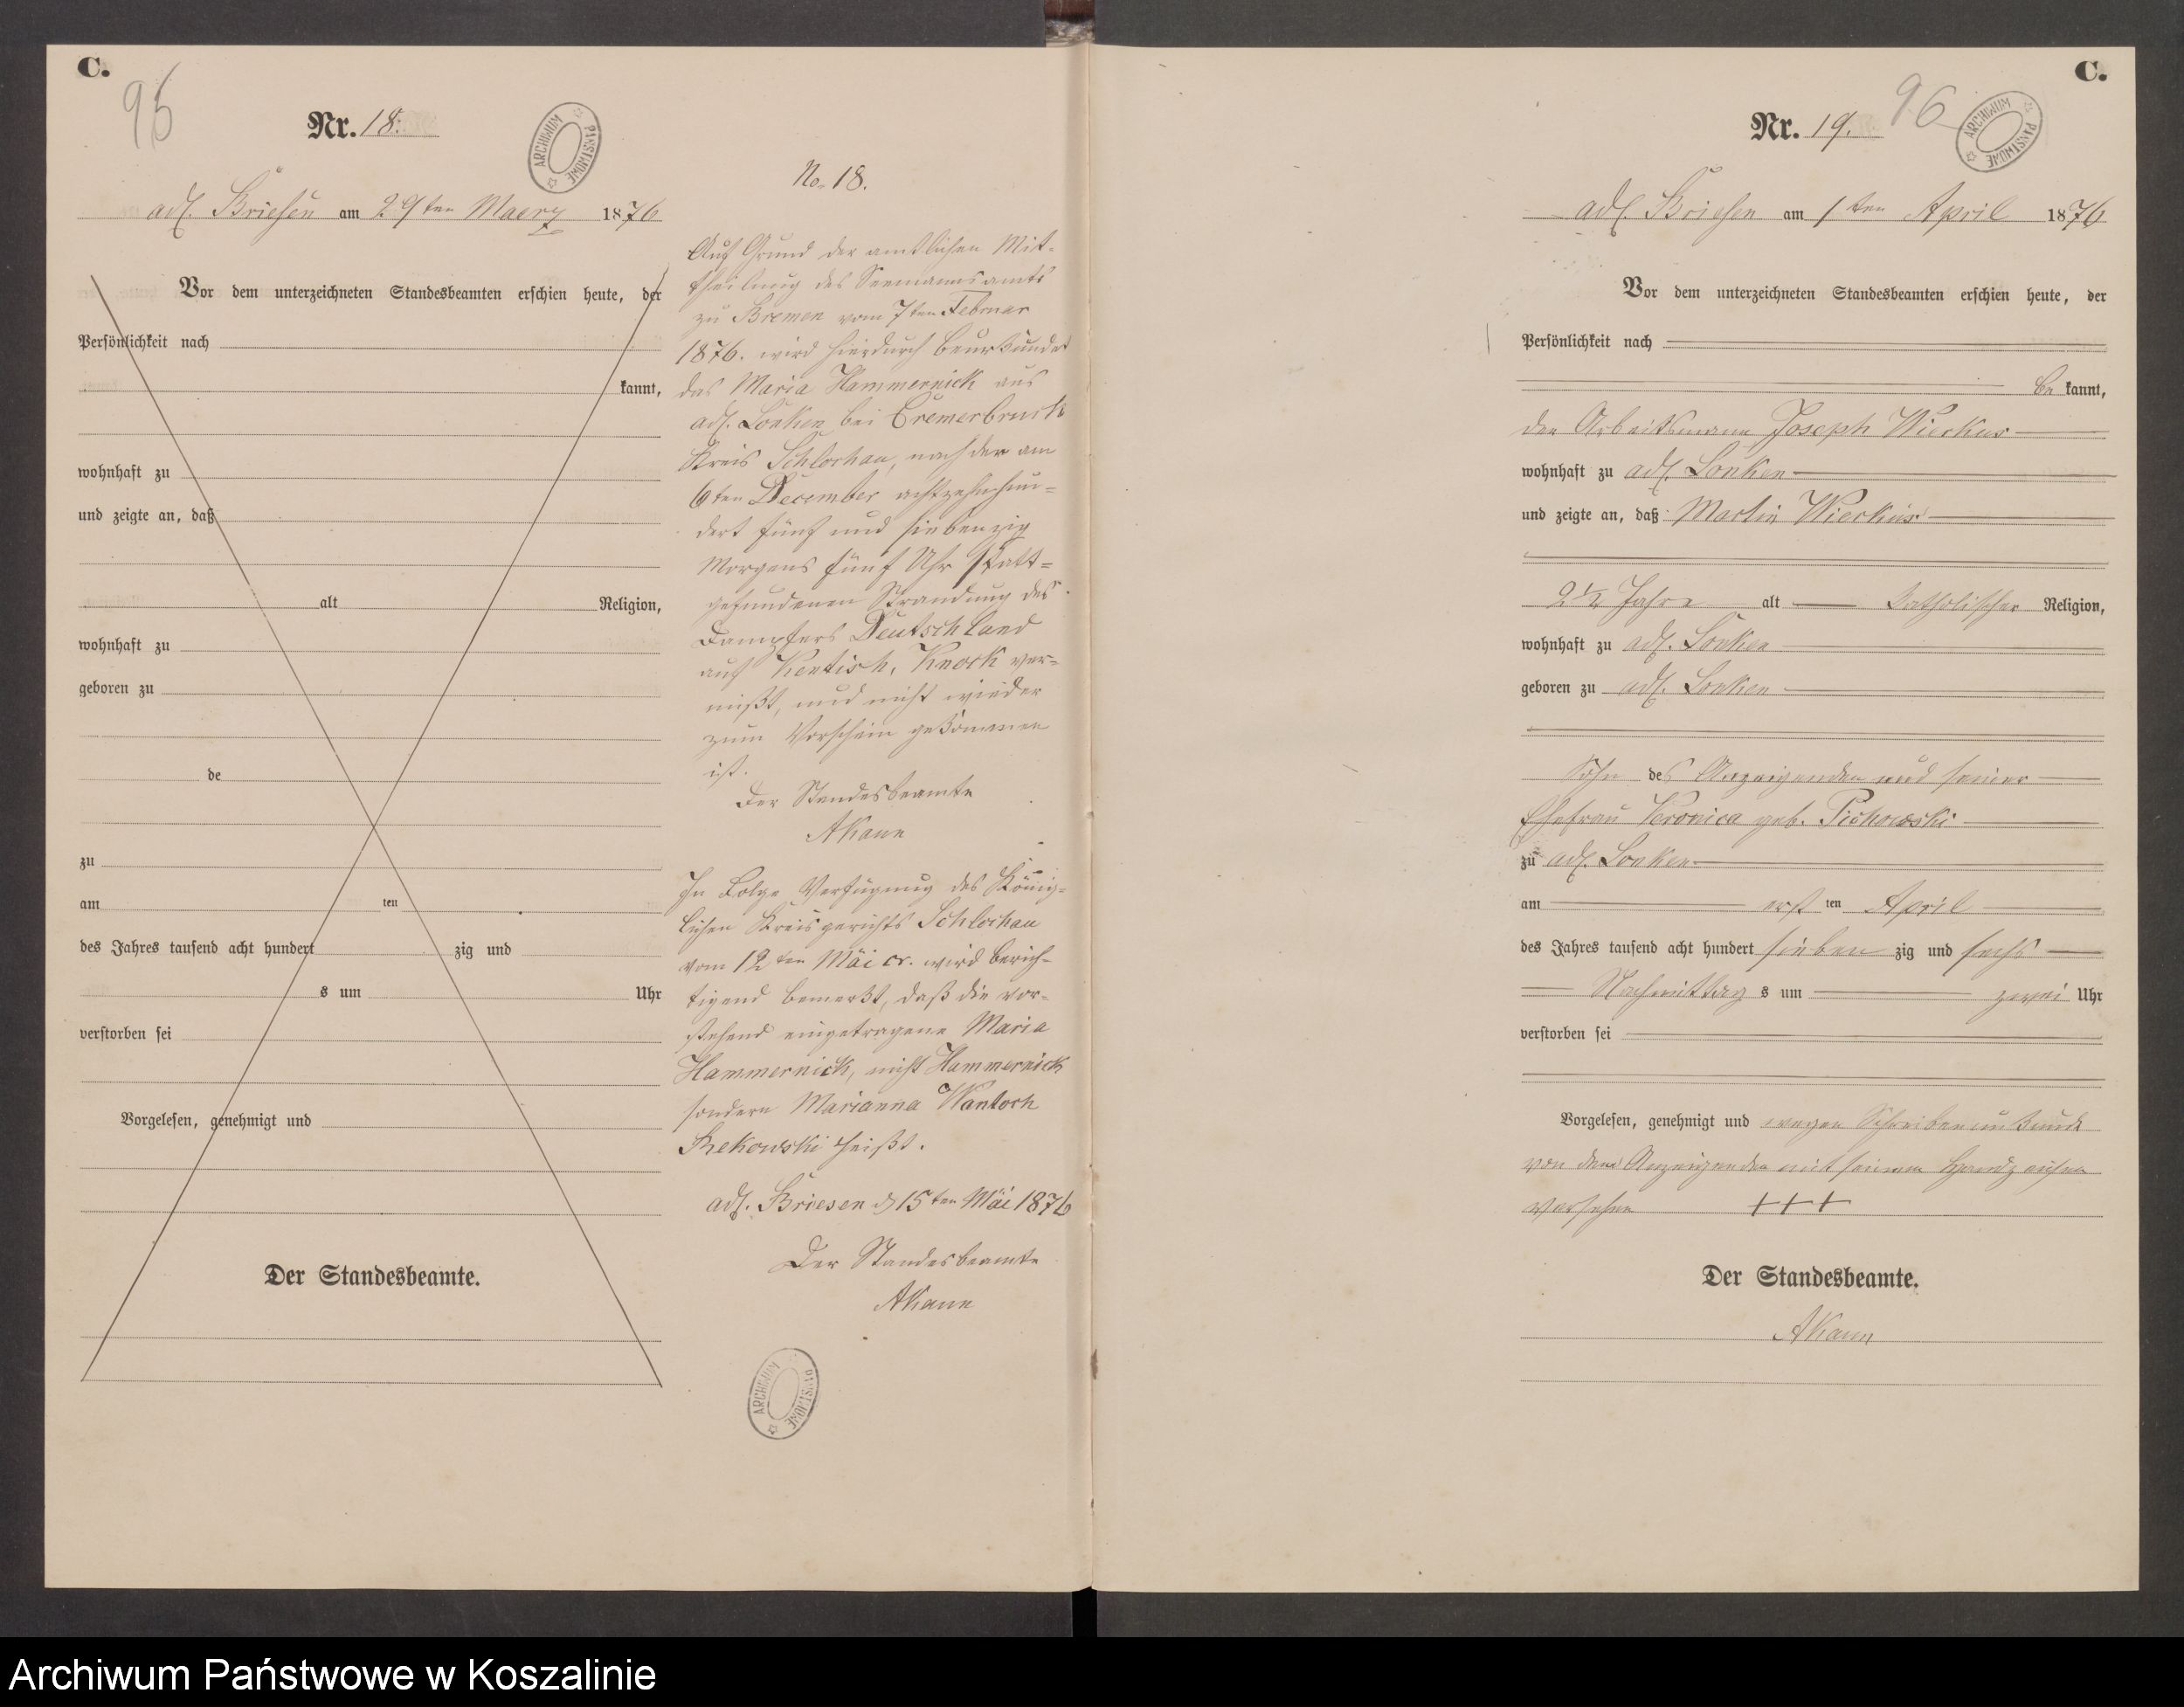 C.
95
Nr. 18.
ARCHIWUM PAŃSTWOWE
adl. Briesen am 29ten Maerz 1876
Vor dem unterzeichneten Standesbeamten erschien heute, der
Persönlichkeit nach
kannt,
wohnhaft zu
und zeigte an, daß
alt Religion,
wohnhaft zu
geboren zu
de
zu
am ten
des Jahres tausend acht hundert zig und
s um Uhr
verstorben sei
Vorgelesen, genehmigt und
Der Standesbeamte.
No. 18.
Auf Grund der amtlichen Mit-
theilung des Seemannsamts
zu Bremen vom 7ten Februar
1876. wird hierdurch beurkundet
das Maria Hammernick aus
adl. Lonken bei Cremerbruch
Kreis Schlochau, nach der am
6ten December achtzehnhun-
dert fünf und siebenzig
Morgens fünf Uhr statt-
gefundenen Strandung des
Dampfers Deutschland
auf Kentish, Knock ver-
mißt, und nicht wieder
zum Vorschein gekommen
ist.
Der Standesbeamte
AKann
In Folge Verfügung des König-
lichen Kreisgerichts Schlochau
vom 12ten Mai cr. wird berich-
tigend bemerkt, daß die vor-
stehend eingetragene Maria
Hammernick, nicht Hammernick
sondern Marianna Wantoch
Rekowski heißt.
adl. Briesen d 15ten Mai 1876
Der Standesbeamte
AKann
ARCHIWUM PAŃSTWOWE
C.
96
Nr. 19.
ARCHIWUM PAŃSTWOWE
adl. Briesen am 1ten April 1876
Vor dem unterzeichneten Standesbeamten erschien heute, der
Persönlichkeit nach
be kannt,
der Arbeitsmann Joseph Wierkus
wohnhaft zu adl. Lonken
und zeigte an, daß Martin Wierkus
2½ Jahre alt katholischer Religion,
wohnhaft zu adl. Lonken
geboren zu adl. Lonken
Sohn des Anzeigenden und seiner
Ehefrau Veronica geb. Pichowski
zu adl. Lonken
am erst ten April
des Jahres tausend acht hundert sieben zig und sechs
Nachmittag s um zwei Uhr
verstorben sei
Vorgelesen, genehmigt und wegen Schreibenunkunde
von dem Anzeigenden mit seinem Handzeichen
versehen +++
Der Standesbeamte.
AKann
Archiwum Państwowe w Koszalinie